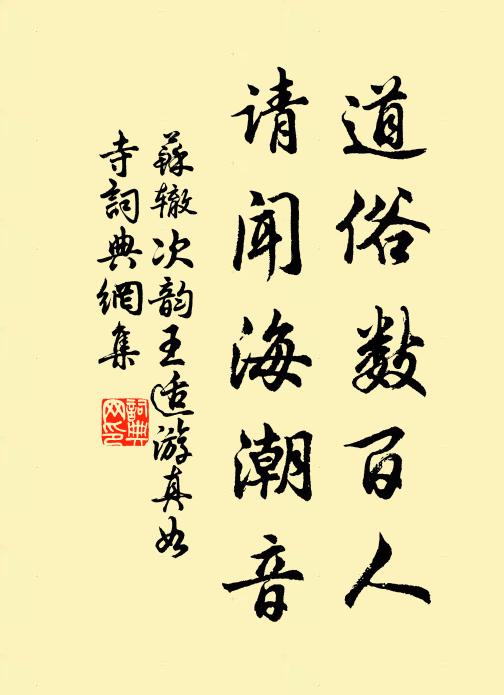 道俗数百人
请闻海潮音
苏辙次韵王适游真如
寺詞典網集
詞典
网印